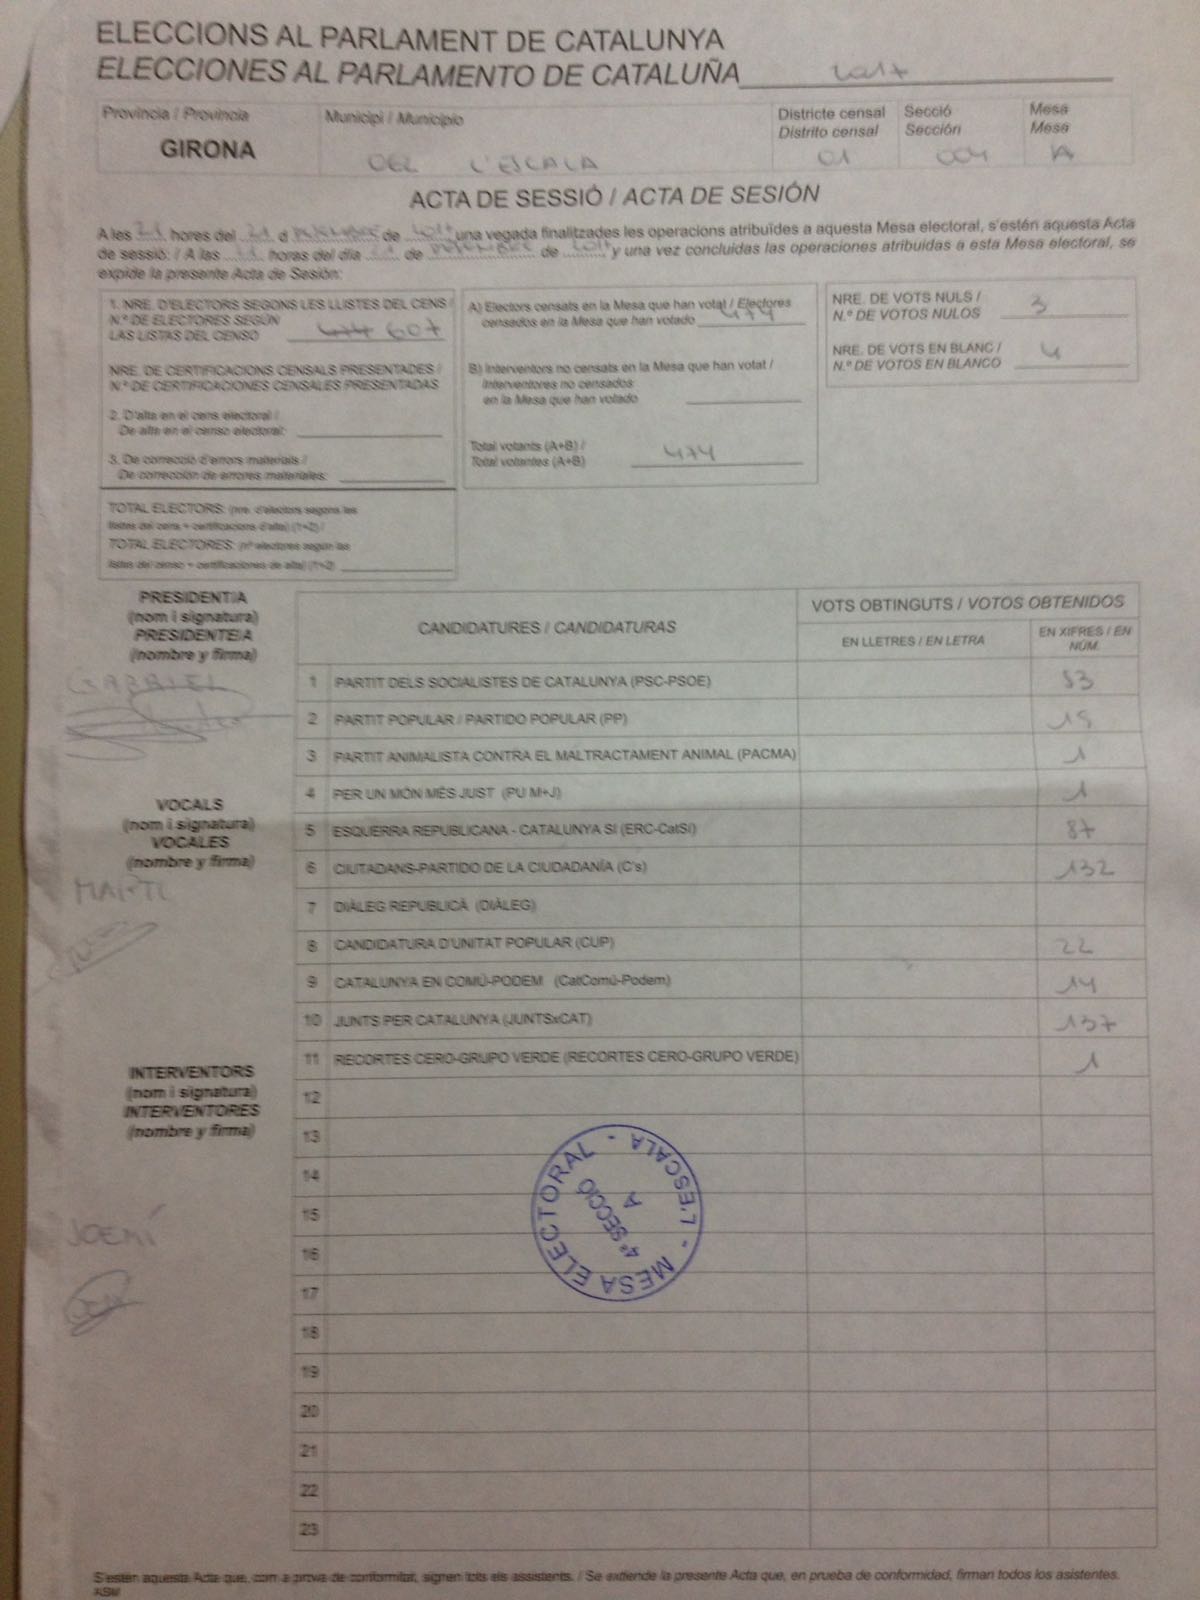 ELECCIONS AL PARLAMENT DE CATALUNYA
ELECCIONES AL PARLAMENTO DE CATALUÑA 2017
Província / Provincia
GIRONA
Municipi / Municipio
DEL L'ESCALA
Districte censal
Distrito censal
01
Secció
Sección
004
Mesa
Mesa
A
ACTA DE SESSIÓ / ACTA DE SESIÓN
A les 21 hores del 21 d DESEMBRE de 2017 una vegada finalitzades les operacions atribuïdes a aquesta Mesa electoral, s'estén aquesta Acta
de sessió: / A las horas del día de de 2017 y una vez concluidas las operaciones atribuidas a esta Mesa electoral, se
expide la presente Acta de Sesión:
1. NRE. D'ELECTORS SEGONS LES LLISTES DEL CENS /
N.º DE ELECTORES SEGÚN
LAS LISTAS DEL CENSO 474 607
NRE. DE CERTIFICACIONS CENSALS PRESENTADES /
N.º DE CERTIFICACIONES CENSALES PRESENTADAS
2. D'alta en el cens electoral /
De alta en el censo electoral:
3. De correcció d'errors materials /
De corrección de errores materiales:
TOTAL ELECTORS: (nre. d'electors segons les
llistes del cens + certificacions d'alta) (1+2) /
TOTAL ELECTORES: (nº electores según las
listas del censo + certificaciones de alta) (1+2)
A) Electors censats en la Mesa que han votat / Electores
censados en la Mesa que han votado 474
B) Interventors no censats en la Mesa que han votat /
Interventores no censados
en la Mesa que han votado
Total votants (A+B) /
Total votantes (A+B) 474
NRE. DE VOTS NULS /
N.º DE VOTOS NULOS 3
NRE. DE VOTS EN BLANC /
N.º DE VOTOS EN BLANCO 4
PRESIDENT/A
(nom i signatura)
PRESIDENTE/A
(nombre y firma)
GABRIEL
VOCALS
(nom i signatura)
VOCALES
(nombre y firma)
MARTI
INTERVENTORS
(nom i signatura)
INTERVENTORES
(nombre y firma)
CANDIDATURES / CANDIDATURAS
VOTS OBTINGUTS / VOTOS OBTENIDOS
EN LLETRES / EN LETRA
EN XIFRES / EN
NÚM.
1 PARTIT DELS SOCIALISTES DE CATALUNYA (PSC-PSOE) 53
2 PARTIT POPULAR / PARTIDO POPULAR (PP) 15
3 PARTIT ANIMALISTA CONTRA EL MALTRACTAMENT ANIMAL (PACMA) 1
4 PER UN MÓN MÉS JUST (PU M+J) 1
5 ESQUERRA REPUBLICANA - CATALUNYA SÍ (ERC-CatSí) 87
6 CIUTADANS-PARTIDO DE LA CIUDADANÍA (C's) 132
7 DIÀLEG REPUBLICÀ (DIÀLEG)
8 CANDIDATURA D'UNITAT POPULAR (CUP) 22
9 CATALUNYA EN COMÚ-PODEM (CatComú-Podem) 14
10 JUNTS PER CATALUNYA (JUNTSxCAT) 137
11 RECORTES CERO-GRUPO VERDE (RECORTES CERO-GRUPO VERDE) 1
12
13
14
15
16
17
18
19
20
21
22
23
MESA ELECTORAL - L'ESCALA -
4ª SECCIÓ
A
S'estén aquesta Acta que, com a prova de conformitat, signen tots els assistents. / Se extiende la presente Acta que, en prueba de conformidad, firman todos los asistentes.
ASM